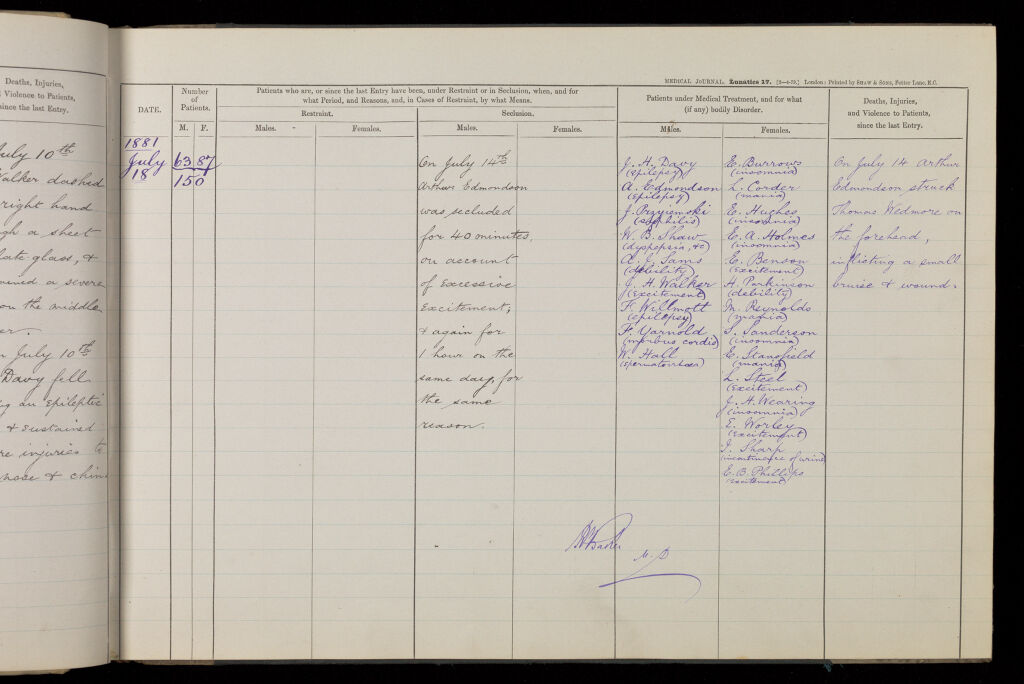 Deaths, Injuries,
Violence to Patients,
since the last Entry.
July 10th
Walker dashed
right hand
a sheet
glass, &
a severe
on the middle
July 10th
Davy fell
an Epileptic
& sustained
injuries to
nose & chin
MEDICAL JOURNAL. Lunatics 17. London: Printed by SHAW & SONS, Fetter Lane, E.C.
DATE.
Number
of
Patients.
M. F.
Patients who are, or since the last Entry have been, under Restraint or in Seclusion, when, and for
what Period, and Reasons, and, in Cases of Restraint, by what Means.
Restraint.
Seclusion.
Males.
Females.
Males.
Females.
Patients under Medical Treatment, and for what
(if any) bodily Disorder.
Males.
Females.
Deaths, Injuries,
and Violence to Patients,
since the last Entry.
1881
July
18
63 87
150
On July 14th
Arthur Edmondson
was secluded
for 40 minutes,
on account
of Excessive
Excitement;
& again for
1 hour on the
same day, for
the same
reason.
J. H. Davy
(Epilepsy)
A. Edmondson
(Epilepsy)
J. Przyiemski
(syphilis)
W. B. Shaw
(dyspepsia, &c)
A. J. Sams
(debility)
J. H. Walker
(Excitement)
F. Willmott
(Epilepsy)
F. Yarnold
(morbus cordis)
W. Hall
E. Burrows
(insomnia)
L. Corder
(mania)
E. Hughes
(insomnia)
E. A. Holmes
(insomnia)
E. Benson
(Excitement)
H. Parkinson
(debility)
M. Reynolds
(mania)
S. Sanderson
(insomnia)
E. Stansfield
(mania)
L. Steel
(Excitement)
J. H. Wearing
(insomnia)
E. Worley
(Excitement)
Sharp
(incontinence of urine)
E. B. Phillips
(Excitement)
On July 14 Arthur
Edmondson struck
Thomas Wedmore on
the forehead,
inflicting a small
bruise & wound.
Baker
M.D